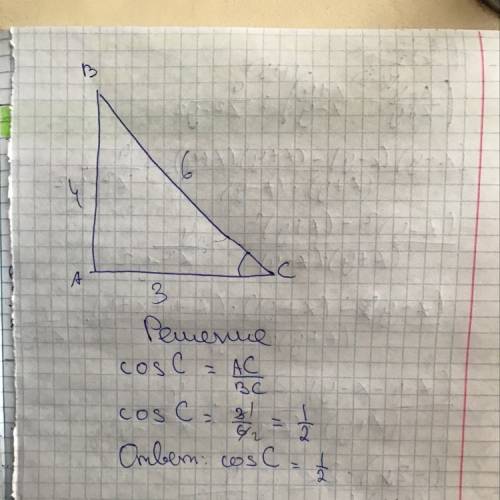 B
4
6
A
C
3
Решение
cos C = AC/BC
cos C = 3 1/6 2 = 1/2
Ответ: cos C = 1/2